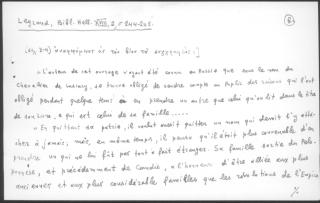 Legrand, Bibl. Hell. XVIII, 2, σ. 244-245.
6
« L'auteur de cet ouvrage n'ayant été connu en Russie que sous le nom de
chevalier de Lascary, se trouve obligé de rendre compte au Public des raisons qui l'ont
obligé pendant quelque tems à en prendre un autre que celui qu'on lit dans le titre
de son Livre, & qui est celui de sa famille.....
« En quittant sa patrie, il voulait aussi quitter un nom qui devait l'y atta-
cher à jamais; mais, en même temps, il pensa qu'il était plus convenable d'en
prendre un qui ne lui fût pas tout à fait étranger. Sa famille sortie du Pélo-
ponnèse, et précédemment de Candie, a l'honneur d'être alliée aux plus
anciennes et aux plus considérables familles que les révolutions de l'Empire
·/.